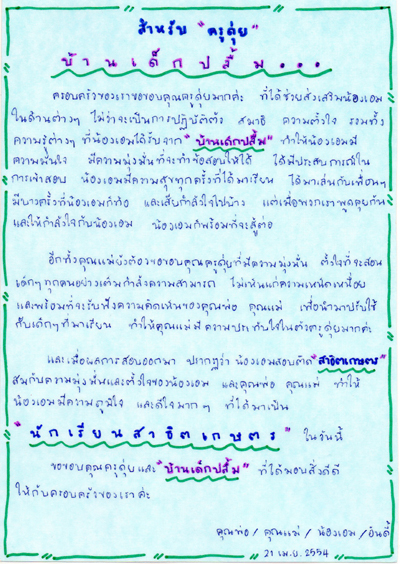 สำหรับ "ครูตุ่ย"
บ้านเด็กปลื้ม...
ครอบครัวของเราขอขอบคุณครูตุ่ยมากค่ะ ที่ได้ช่วยส่งเสริมน้องเอม
ในด้านต่างๆ ไม่ว่าจะเป็นการปฏิบัติตัว สมาธิ ความตั้งใจ รวมทั้ง
ความรู้ต่างๆ ที่น้องเอมได้รับจาก "บ้านเด็กปลื้ม" ทำให้น้องเอมมี
ความมั่นใจ มีความมุ่งมั่นที่จะทำข้อสอบให้ได้ ได้มีประสบการณ์ใน
การเข้าสอบ น้องเอมมีความสุขทุกครั้งที่ได้มาเรียน ได้มาเล่นกับเพื่อนๆ
มีบางครั้งที่น้องเอมท้อ และเสียกำลังใจไปบ้าง แต่เมื่อพวกเราพูดคุยกัน
และให้กำลังใจกับน้องเอม น้องเอมก็พร้อมที่จะสู้ต่อ
อีกทั้งคุณแม่ยังต้องขอขอบคุณครูตุ่ยที่มีความมุ่งมั่น ตั้งใจที่จะสอน
เด็กๆ ทุกคนอย่างเต็มกำลังความสามารถ ไม่เห็นแก่ความเหน็ดเหนื่อย
และพร้อมที่จะรับฟังความคิดเห็นของคุณพ่อ คุณแม่ เพื่อนำมาปรับใช้
กับเด็กๆ ที่มาเรียน ทำให้คุณแม่มีความประทับใจในตัวครูตุ่ยมากค่ะ
และเมื่อผลการสอบออกมา ปรากฏว่า น้องเอมสอบติด "สาธิตเกษตร"
สมกับความมุ่งมั่นและตั้งใจของน้องเอม และคุณพ่อ คุณแม่ ทำให้
น้องเอมมีความภูมิใจ และดีใจมากๆ ที่ได้มาเป็น
"นักเรียนสาธิตเกษตร" ในวันนี้
ขอขอบคุณครูตุ่ยและ "บ้านเด็กปลื้ม" ที่ได้มอบสิ่งดีดี
ให้กับครอบครัวของเราค่ะ
คุณพ่อ / คุณแม่ / น้องเอม / อินดี้
21 เม.ย. 2554